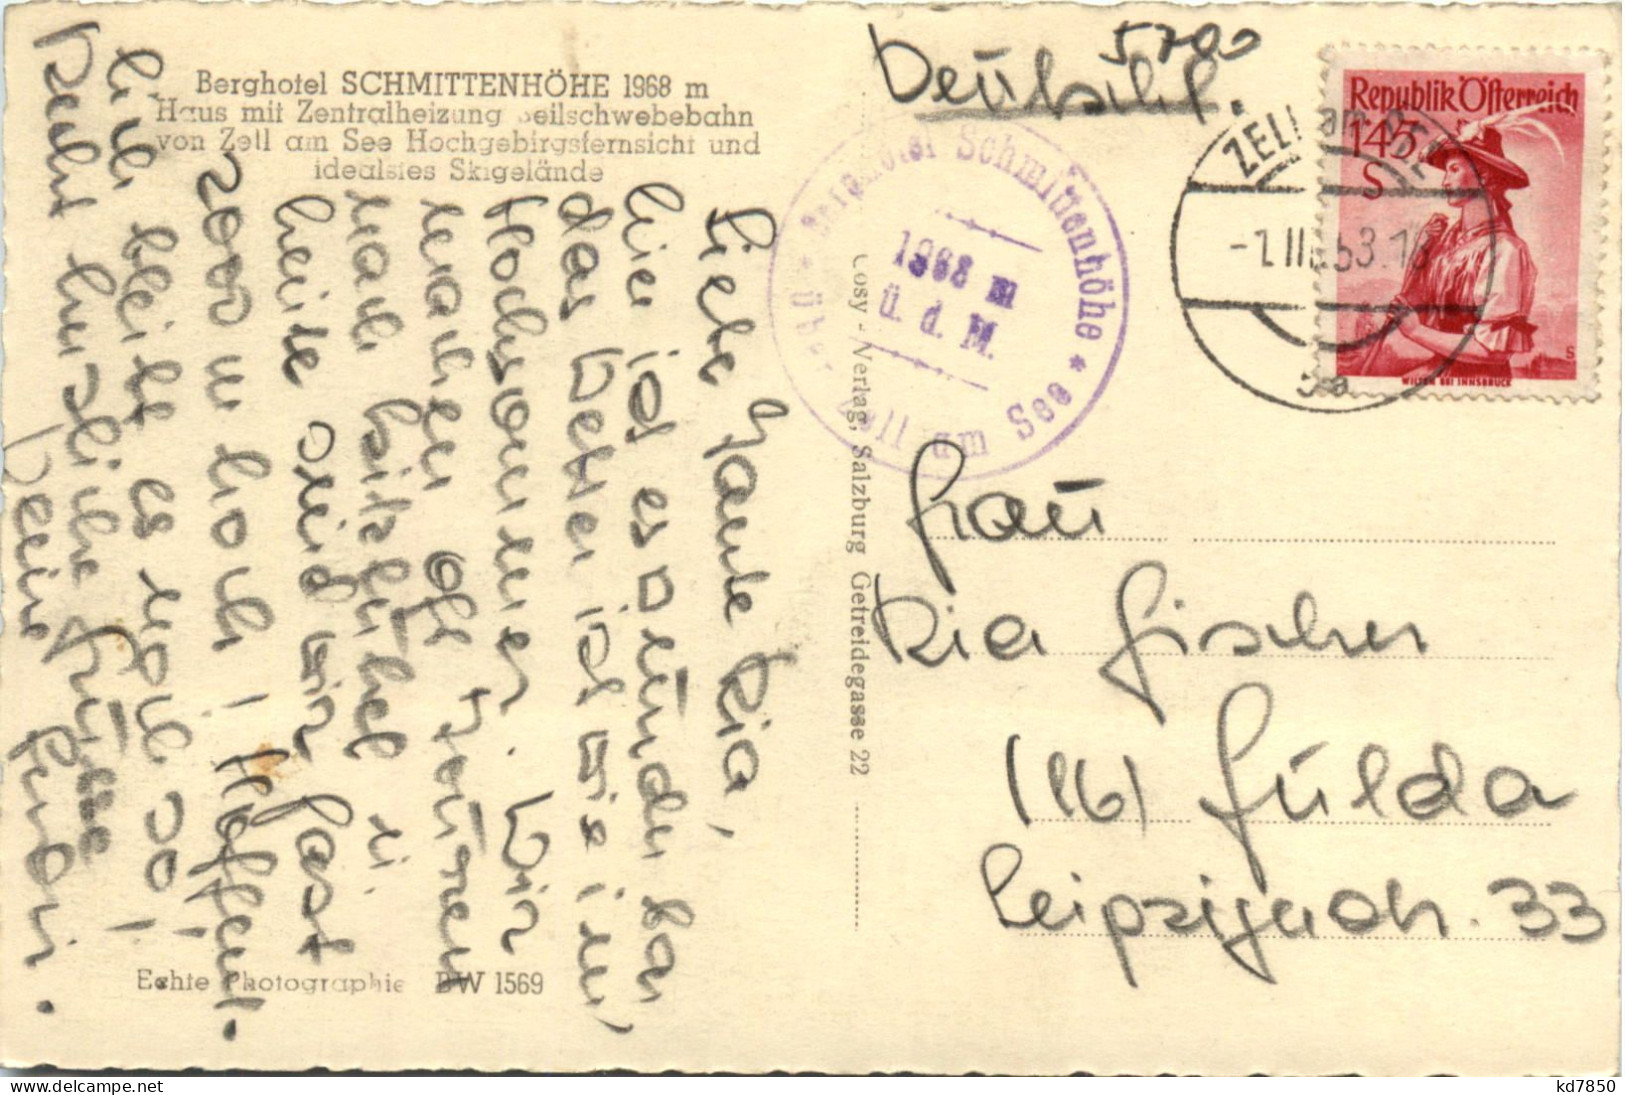 Berghotel SCHMITTENHÖHE 1968 m
Haus mit Zentralheizung Seilschwebebahn
von Zell am See Hochgebirgsfernsicht und
idealstes Skigelände
Liebe Tante Ria,
hier ist es wunderbar
das Wetter ist wie im
Hochsommer. Wir
machen oft Touren
nach Kitzbühel u.
heute sind wir fast
2000 m hoch! Hoffent-
lich bleibt es noch so!
Recht herzliche Grüße
Deine
Echte Photographie BW 1569
Cosy-Verlag, Salzburg Getreidegasse 22
Berghotel Schmittenhöhe
* über Zell am See *
1968 m
ü. d. M.
5700
Deutschl.
Republik Österreich
1·45
S
WILTEN BEI INNSBRUCK
ZELL am SEE
-1.III.53.18
5a
Frau
Ria Fischer
(16) Fulda
Leipzigerstr. 33
kd7850